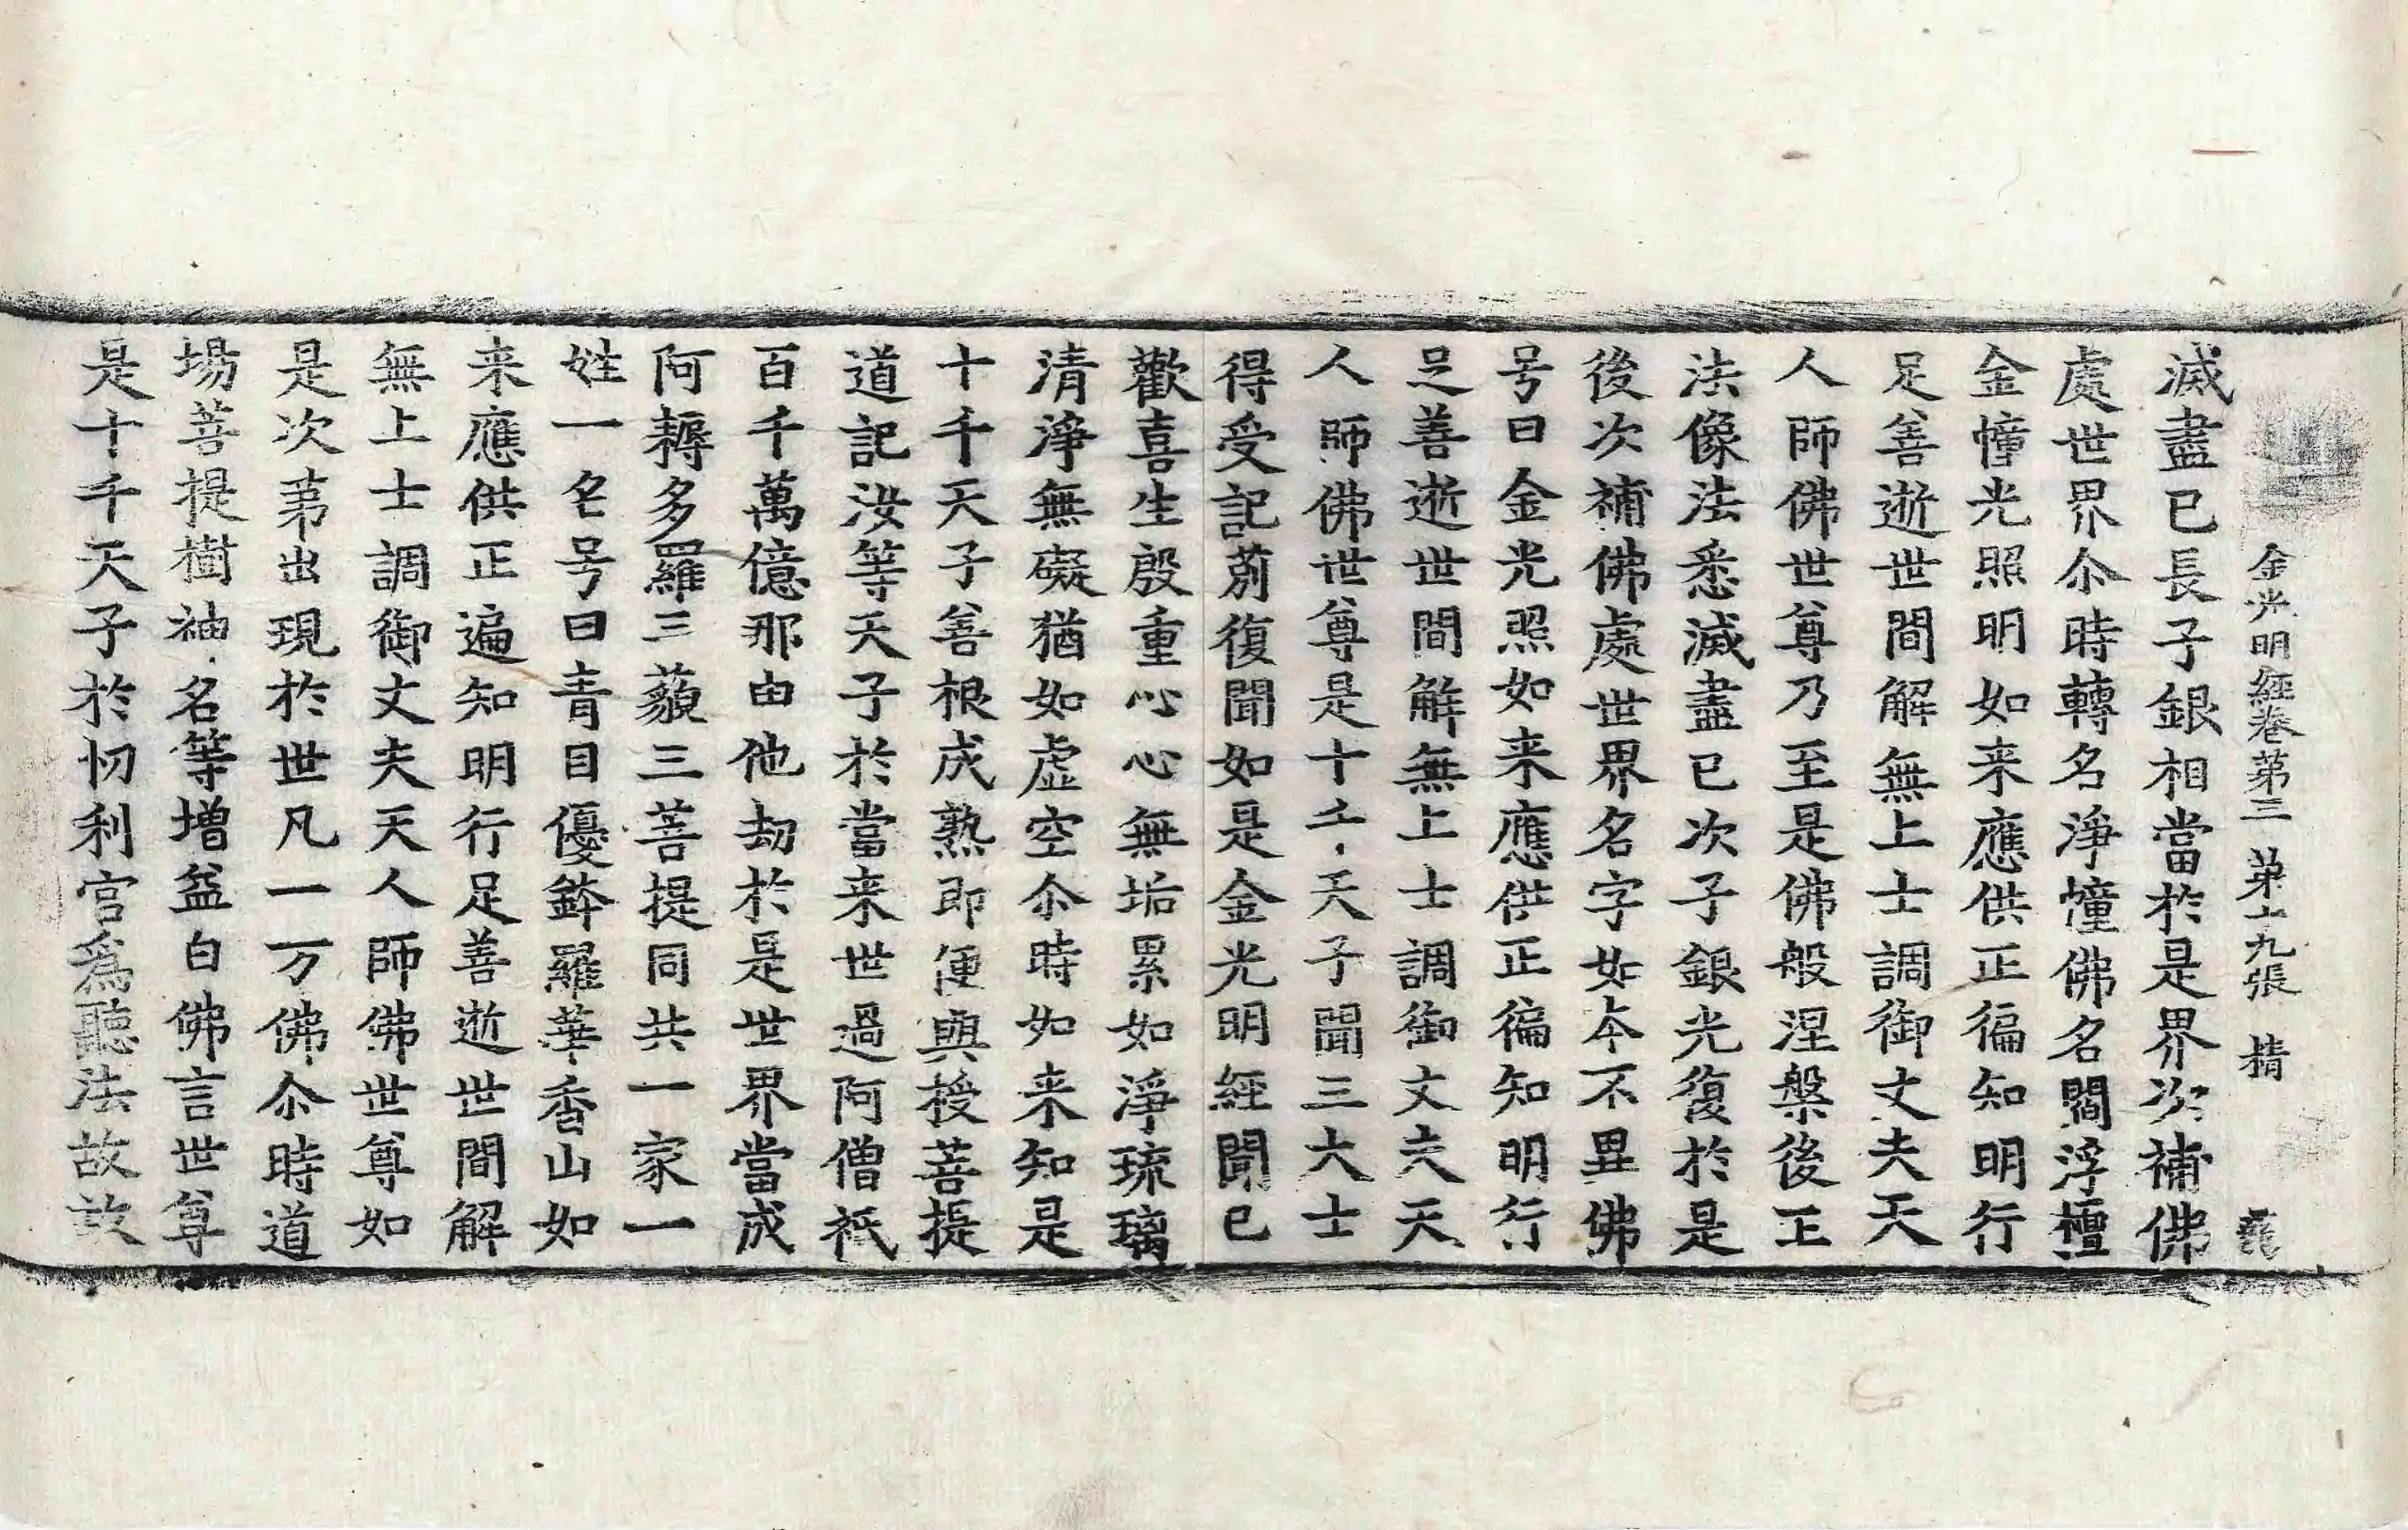 金光明經卷第三 第十九張 精
滅盡已長子銀相當於是界次補佛
處世界尒時轉名淨幢佛名閻浮檀
金幢光照明如来應供正徧知明行
足善逝世間解無上士調御丈夫天
人師佛世尊乃至是佛般涅槃後正
法像法悉滅盡已次子銀光復於是
後次補佛處世界名字如本不異佛
号曰金光照如来應供正徧知明行
足善逝世間解無上士調御丈夫天
人師佛世尊是十千天子聞三大士
得受記莂復聞如是金光明經聞已
歡喜生殷重心心無垢累如淨琉璃
清淨無礙猶如虚空尒時如来知是
十千天子善根成熟即便與授菩提
道記汝等天子於當来世過阿僧祇
百千萬億那由他劫於是世界當成
阿耨多羅三藐三菩提同共一家一
姓一名号曰青目優鉢羅華香山如
来應供正遍知明行足善逝世間解
無上士調御丈夫天人師佛世尊如
是次第出現於世凡一万佛尒時道
場菩提樹神名等增益白佛言世尊
是十千天子於忉利宮為聽法故故